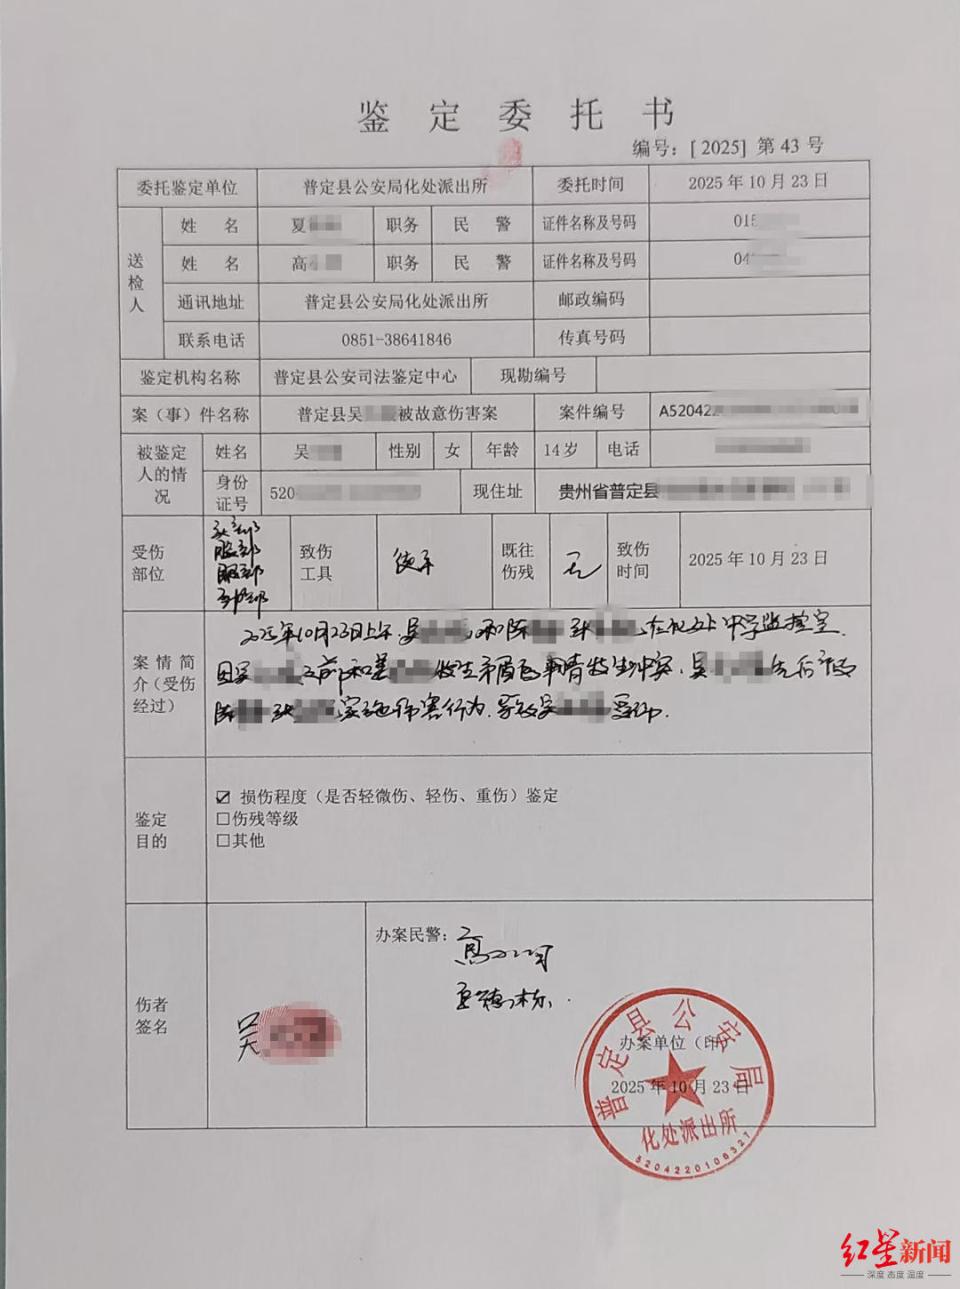 鉴定委托书
编号：[2025] 第 43 号
委托鉴定单位 普定县公安局化处派出所 委托时间 2025 年 10 月 23 日
送检人
姓 名 夏 职务 民 警 证件名称及号码 015
姓 名 高 职务 民 警 证件名称及号码 04
通讯地址 普定县公安局化处派出所 邮政编码
联系电话 0851-38641846 传真号码
鉴定机构名称 普定县公安司法鉴定中心 现勘编号
案（事）件名称 普定县吴 被故意伤害案 案件编号 A520422
被鉴定人的情况
姓名 吴 性别 女 年龄 14 岁 电话
身份证号 520 现住址 贵州省普定县
受伤部位 头部 腹部 腿部 致伤工具 徒手 既往伤残 无 致伤时间 2025 年 10 月 23 日
案情简介（受伤经过）
2025年10月23日上午 吴 和陈 张 在化处中学监控室
因吴 之前和姜 发生矛盾 发生冲突，吴 先后被
陈 张 实施伤害行为，导致吴 受伤.
鉴定目的
☑ 损伤程度（是否轻微伤、轻伤、重伤）鉴定
□伤残等级
□其他
伤者签名 吴
办案民警：
办案单位（印）
2025 年 10 月 23 日
普定县公安局
化处派出所
5204220106327
红星新闻
深度 态度 温度